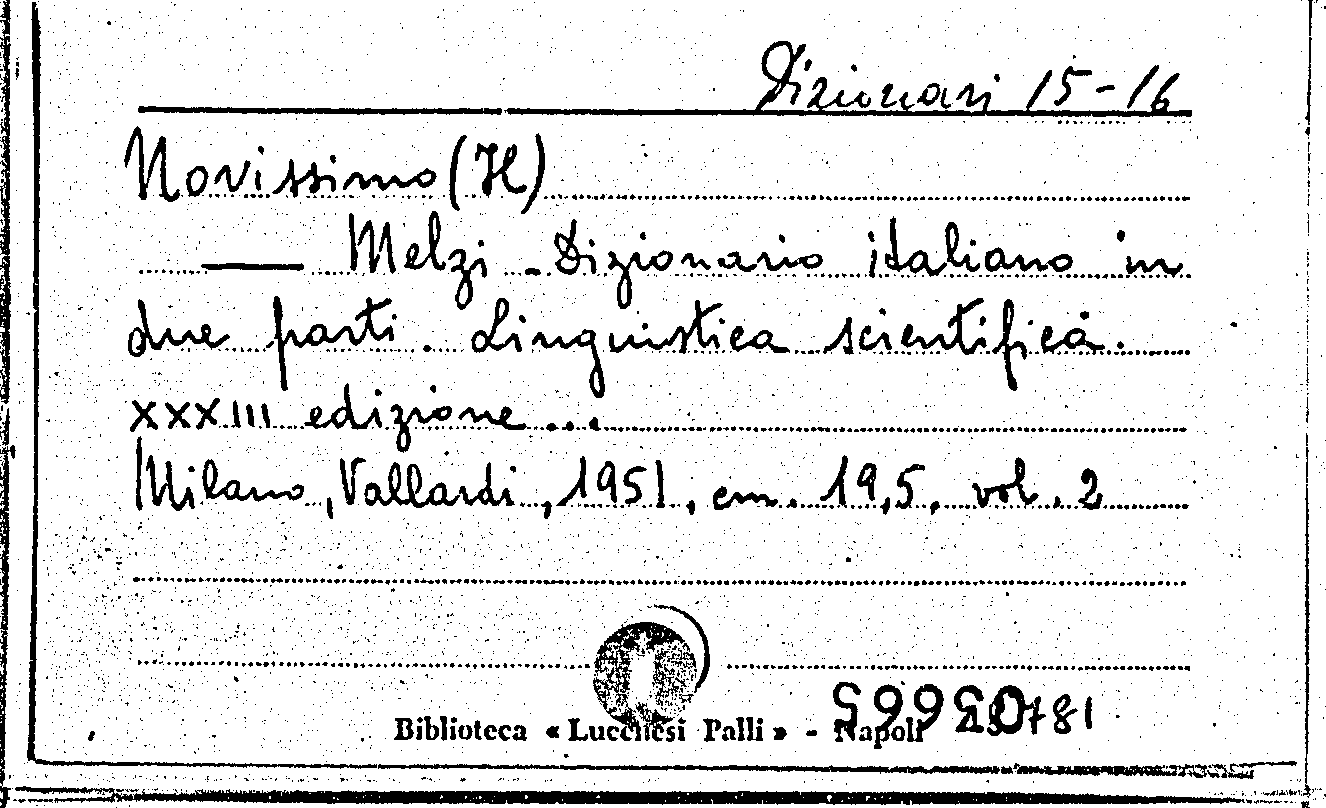 Dizionari 15-16
Novissimo (Il)
— Melzi - Dizionario italiano in
due parti. Linguistica scientifica.
XXXIII edizione...
Milano, Vallardi, 1951, cm. 19,5, vol. 2
Biblioteca « Lucchesi Palli » - Napoli